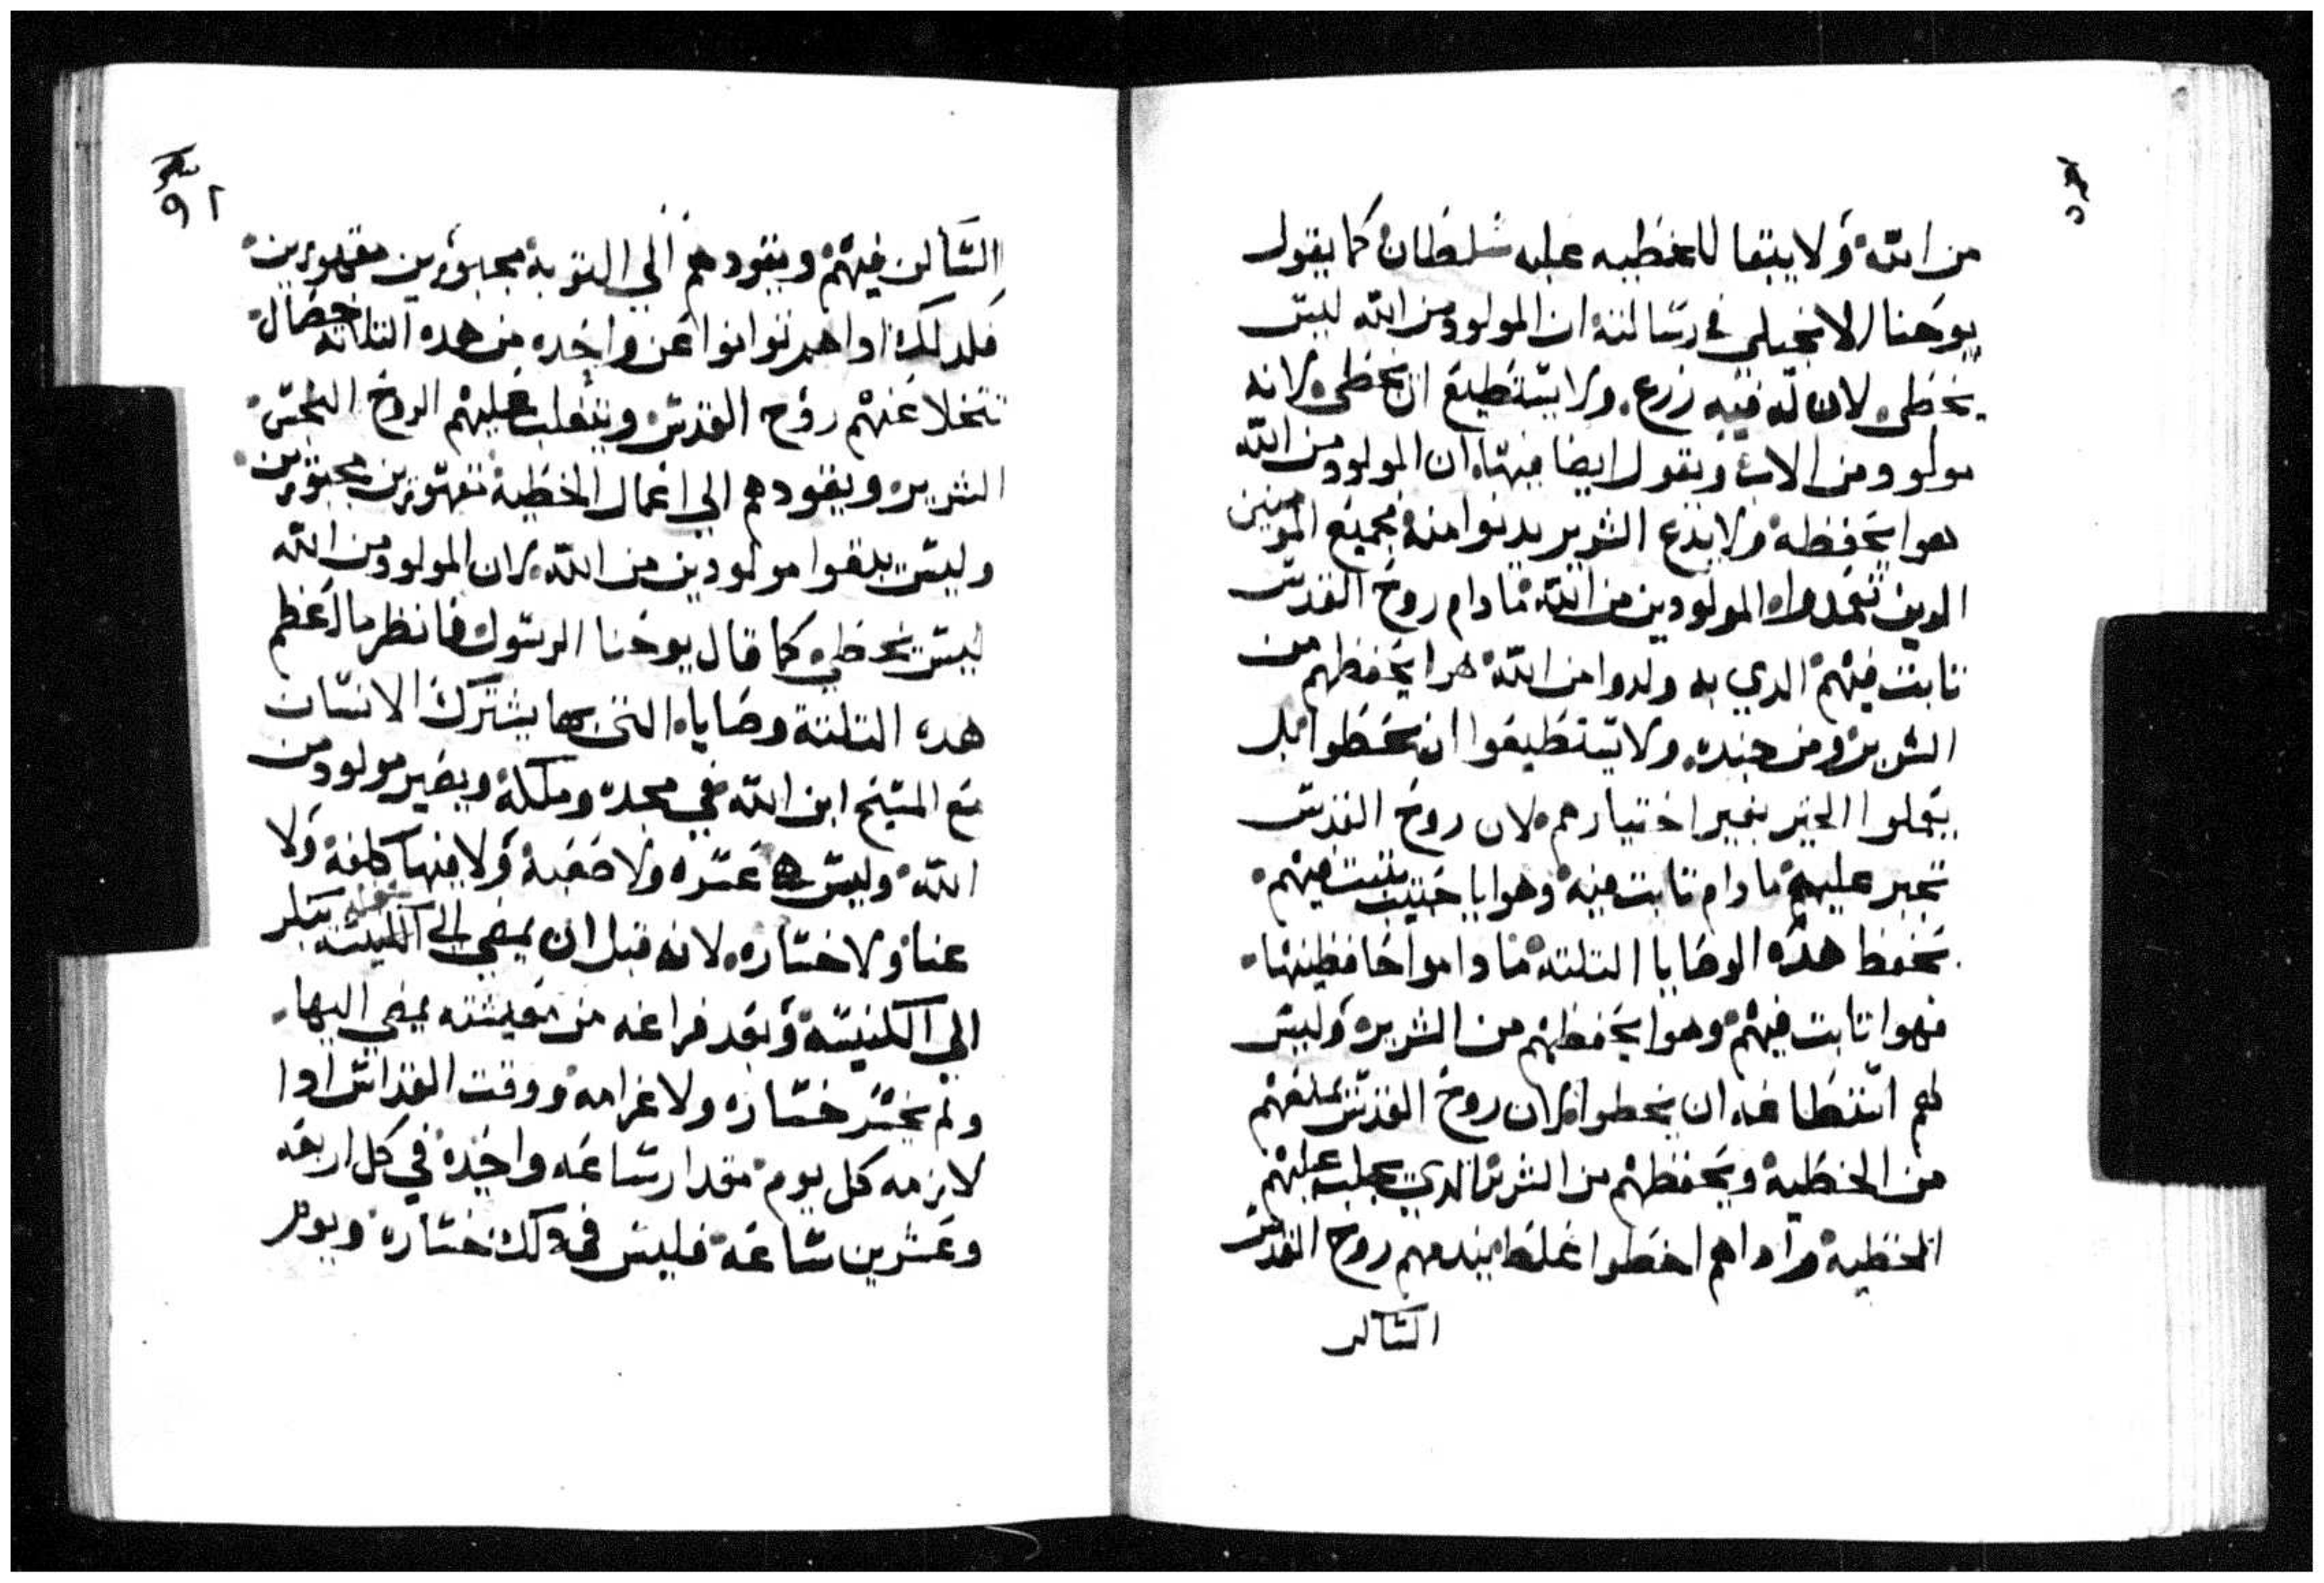 من الله ولا يبقا للخطيه عليه سلطان كما يقول
يوحنا الانجيلي في رسالته ان المولود من الله ليس
يخطي لان له فيه زرع ولا يستطيع ان يخطي لانه
مولود من الاب ويقول ايضا فيها ان المولود من الله
هوا يحفظه ولا يدع الشرير يدنوا منه فجميع المومنين
الدين تعمدوا المولودين من الله ما دام روح القدس
تابت فيهم الدي به ولدوا من الله هوا يحفظهم من
الشرير ومن جنده ولا يستطيعوا ان يخطوا بل
يعملوا الخير بغير اختيارهم لان روح القدس
تجبر عليهم ما دام تابت فيه وهوايا يتبت فيهم
بحفظ هده الوصايا التلته ما داموا حافظينها
فهوا تابت فيهم وهوا يحفظهم من الشرير وليس
لهم استطاعه ان يخطوا لان روح القدس يمنعهم
من الخطية ويحفظهم من الشرير الدي يجلب عليهم
الخطيه وادا هم اخطوا غلط يندمهم روح القدس
الساكن
٩٢
الساكن فيهم ويقودهم الي التوبة مجبورين مقهورين
فلدلك ادا هم توانوا عن واحده من هده التلاته خصال
تتخلا عنهم روح القدس ويتغلب عليهم الروح النجس
الشرير ويقودهم الي اعمال الخطية مقهورين مجبورين
وليس يبقوا مولودين من الله لان المولود من الله
ليس يخطي كما قال يوحنا الرسول فانظر ما اعظم
هده التلتة وصايا التي بها يشترك الانسان
مع المسيح ابن الله في مجده وملكه ويصير مولود من
الله وليس عسره ولا صعبة ولا فيها كلفة ولا
عنا ولا خساره لانه قبل ان يمضي الي يبكر
الي الكنيسة وبعد فراغه من معيشته يمضي اليها
ولم يخسر خساره ولا غرامه ووقت القداس ادا
لازمه كل يوم مقدار ساعه واحدة في كل اربعه
وعشرين ساعة فليس في دلك خساره ويوم